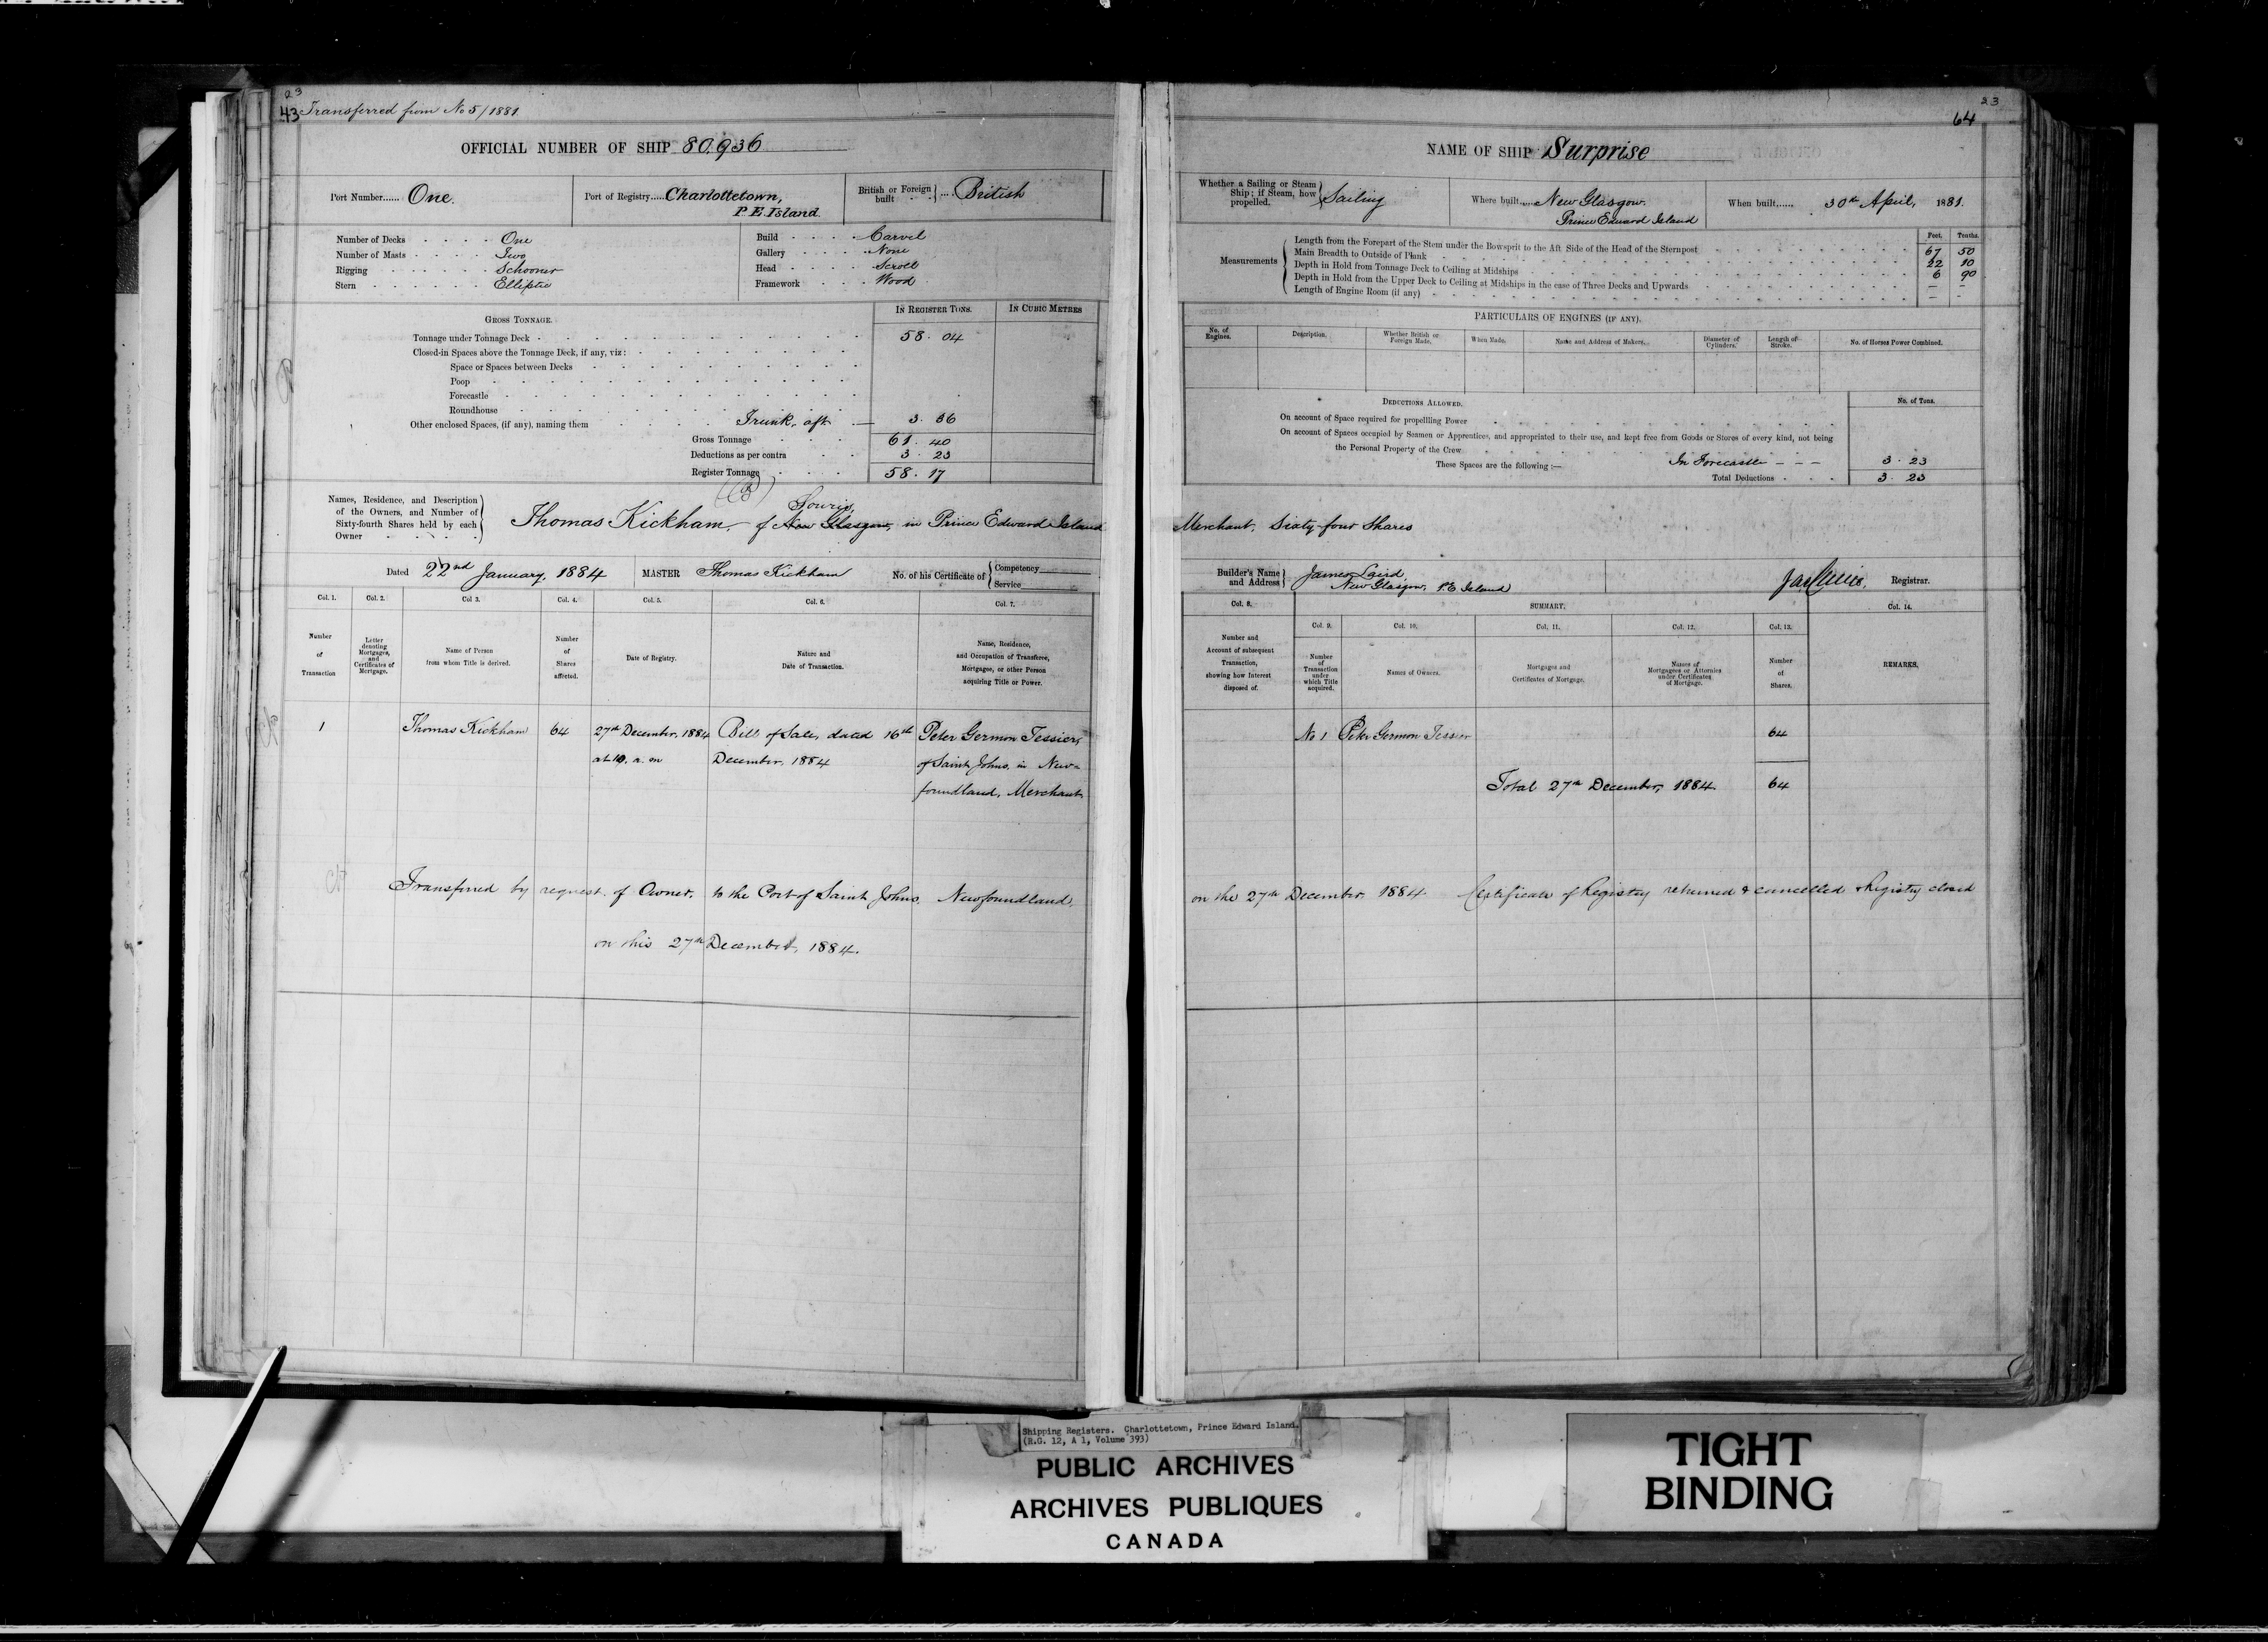 23
43 Transferred from No 5/1881
OFFICIAL NUMBER OF SHIP 80,936
Port Number...... One.
Port of Registry..... Charlottetown,
P. E. Island.
British or Foreign built } ... British
Number of Decks One
Number of Masts Two
Rigging Schooner
Stern Elliptic
Build Carvel
Gallery None
Head Scroll
Framework Wood
GROSS TONNAGE.
IN REGISTER TONS.
IN CUBIC METRES
Tonnage under Tonnage Deck 58. 04
Closed-in Spaces above the Tonnage Deck, if any, viz:
Space or Spaces between Decks
Poop
Forecastle
Roundhouse
Other enclosed Spaces, (if any), naming them Trunk, aft. 3. 36
Gross Tonnage 61. 40
Deductions as per contra 3. 23
Register Tonnage 58. 17
(B)
Names, Residence, and Description
of the Owners, and Number of
Sixty-fourth Shares held by each
Owner
Souris,
Thomas Kickham, of New Glasgow, in Prince Edward Island
Dated 22nd January, 1884
MASTER Thomas Kickham
No. of his Certificate of { Competency
Service
Col. 1.
Col. 2.
Col 3.
Col. 4.
Col. 5.
Col. 6.
Col. 7.
Number of Transaction
Letter denoting Mortgages, and Certificates of Mortgage.
Name of Person from whom Title is derived.
Number of Shares affected.
Date of Registry.
Nature and Date of Transaction.
Name, Residence, and Occupation of Transferee, Mortgagee, or other Person acquiring Title or Power.
1 Thomas Kickham 64 27th December, 1884 Bill of Sale, dated 16th Peter Germon Tessier,
at 10. a. m December, 1884 of Saint Johns, in New-
foundland, Merchant
Transferred by request of Owner, to the Port of Saint Johns, Newfoundland,
on this 27th December, 1884.
23
64
NAME OF SHIP Surprise
Whether a Sailing or Steam
Ship; if Steam, how
propelled. } Sailing
Where built..... New Glasgow.
Prince Edward Island
When built...... 30th April, 1881.
Feet. Tenths.
Measurements
Length from the Forepart of the Stem under the Bowsprit to the Aft Side of the Head of the Sternpost 67 50
Main Breadth to Outside of Plank 22 10
Depth in Hold from Tonnage Deck to Ceiling at Midships 6 90
Depth in Hold from the Upper Deck to Ceiling at Midships in the case of Three Decks and Upwards – –
Length of Engine Room (if any) – –
PARTICULARS OF ENGINES (IF ANY).
No. of Engines.
Description.
Whether British or Foreign Made.
When Made.
Name and Address of Makers.
Diameter of Cylinders.
Length of Stroke.
No. of Horses Power Combined.
DEDUCTIONS ALLOWED.
No. of Tons.
On account of Space required for propellling Power
On account of Spaces occupied by Seamen or Apprentices, and appropriated to their use, and kept free from Goods or Stores of every kind, not being
the Personal Property of the Crew
These Spaces are the following:— In Forecastle – – – 3. 23
Total Deductions 3. 23
Merchant. Sixty-four Shares
Builder's Name
and Address } James Laird
New Glasgow, P.E Island
Registrar.
Col. 8.
SUMMARY.
Col. 14.
Col. 9.
Col. 10.
Col. 11.
Col. 12.
Col. 13.
Number and Account of subsequent Transaction, showing how Interest disposed of.
Number of Transaction under which Title acquired.
Names of Owners.
Mortgages and Certificates of Mortgage.
Names of Mortgagees or Attornies under Certificates of Mortgage.
Number of Shares.
REMARKS.
No 1 Peter Germon Tessier 64
Total 27th December, 1884 64
on the 27th December, 1884. Certificate of Registry returned & cancelled & Registry closed
Shipping Registers. Charlottetown, Prince Edward Island.
(R.G. 12, A 1, Volume 393)
PUBLIC ARCHIVES
ARCHIVES PUBLIQUES
CANADA
TIGHT
BINDING